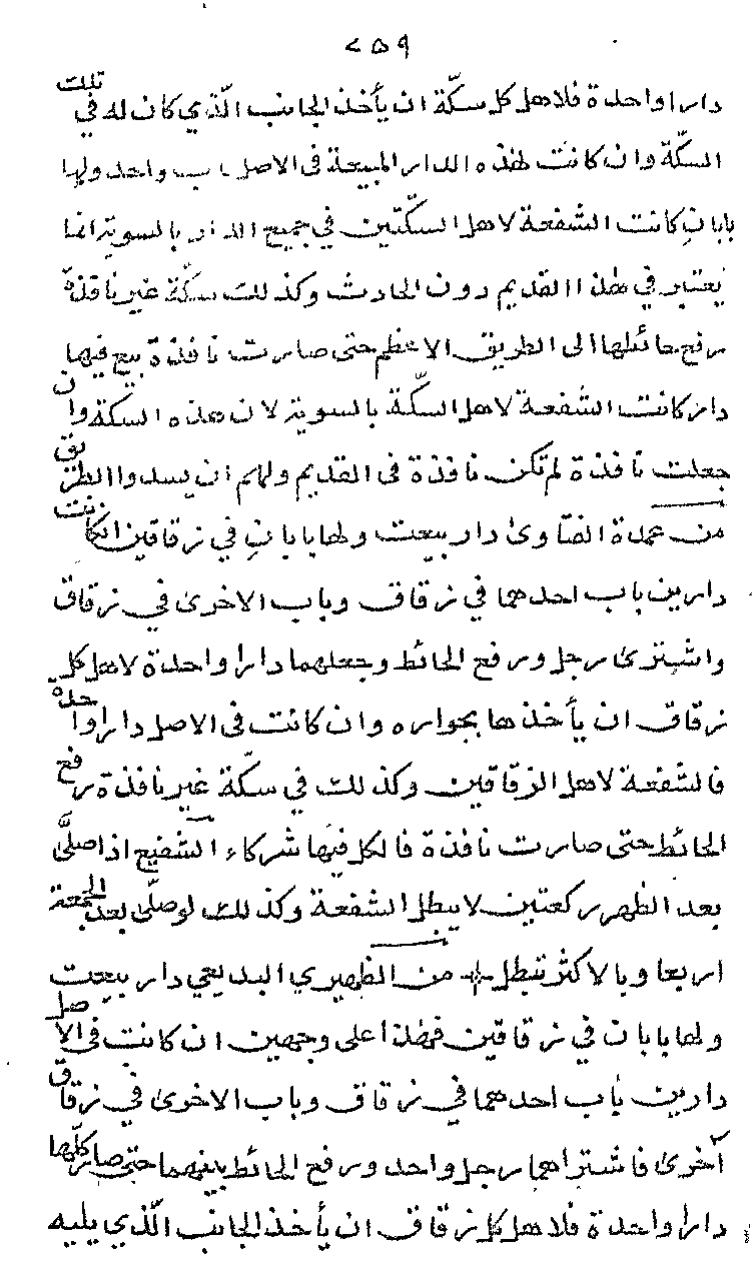 ٢٥٩
دارا واحدة فلاهل كل سكّة ان يأخذ الجانب الّذي كان له في تلك
السكّة وان كانت لهذه الدار المبيعة فى الاصل باب واحد ولها
بابانِ كانت الشفعة لاهل السكّتين في جميع الدار بالسوية انما
يعتبر في هذا القديم دون الحادث وكذلك سكّة غير نافذة
رفع حائلها الى الطريق الاعظم حتى صارت نافذة بيع فيها
دار كانت الشفعة لاهل السكّة بالسوية لان هذه السكة وان
جعلت نافذة لم تكن نافذة فى القديم ولهم ان يسدوا الطريق
من عمدة الفتاوىٰ دار بيعت ولها بابانِ في زقاقين ان كانت
دارين باب احدهما في زقاق وباب الاخرىٰ في زقاق
واشترىٰ رجل ورفع الحائط وجعلهما دارا واحدة لاهل كل
زقاق ان يأخذها بجواره وان كانت فى الاصل دارا واحدة
فالشفعة لاهل الزقاقين وكذلك في سكّة غير نافذة رفع
الحائط حتى صارت نافذة فالكل فيها شركاء الشفيع اذا صلّى
بعد الظهر ركعتين لا يبطل الشفعة وكذلك لو صلّى بعد الجمعة
اربعا وبالاكثر تبطل من الظهيري البديعي دار بيعت
ولها بابان في زقاقين فهذا على وجهين ان كانت فى الاصل
دارين باب احدهما في زقاق وباب الاخرىٰ في زقاق
آخرىٰ فاشتراهما رجل واحد ورفع الحائط بينهما حتى صار كلّها
دارا واحدة فلاهل كل زقاق ان يأخذ الجانب الّذي يليه